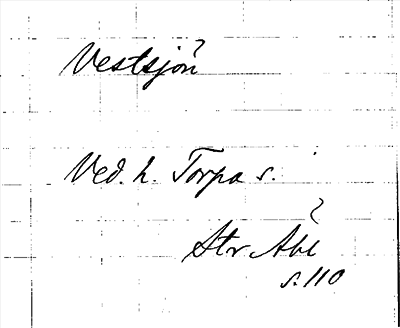 Vestsjön?
Ved. h. Torpa s.
?
Str Abl
s. 110